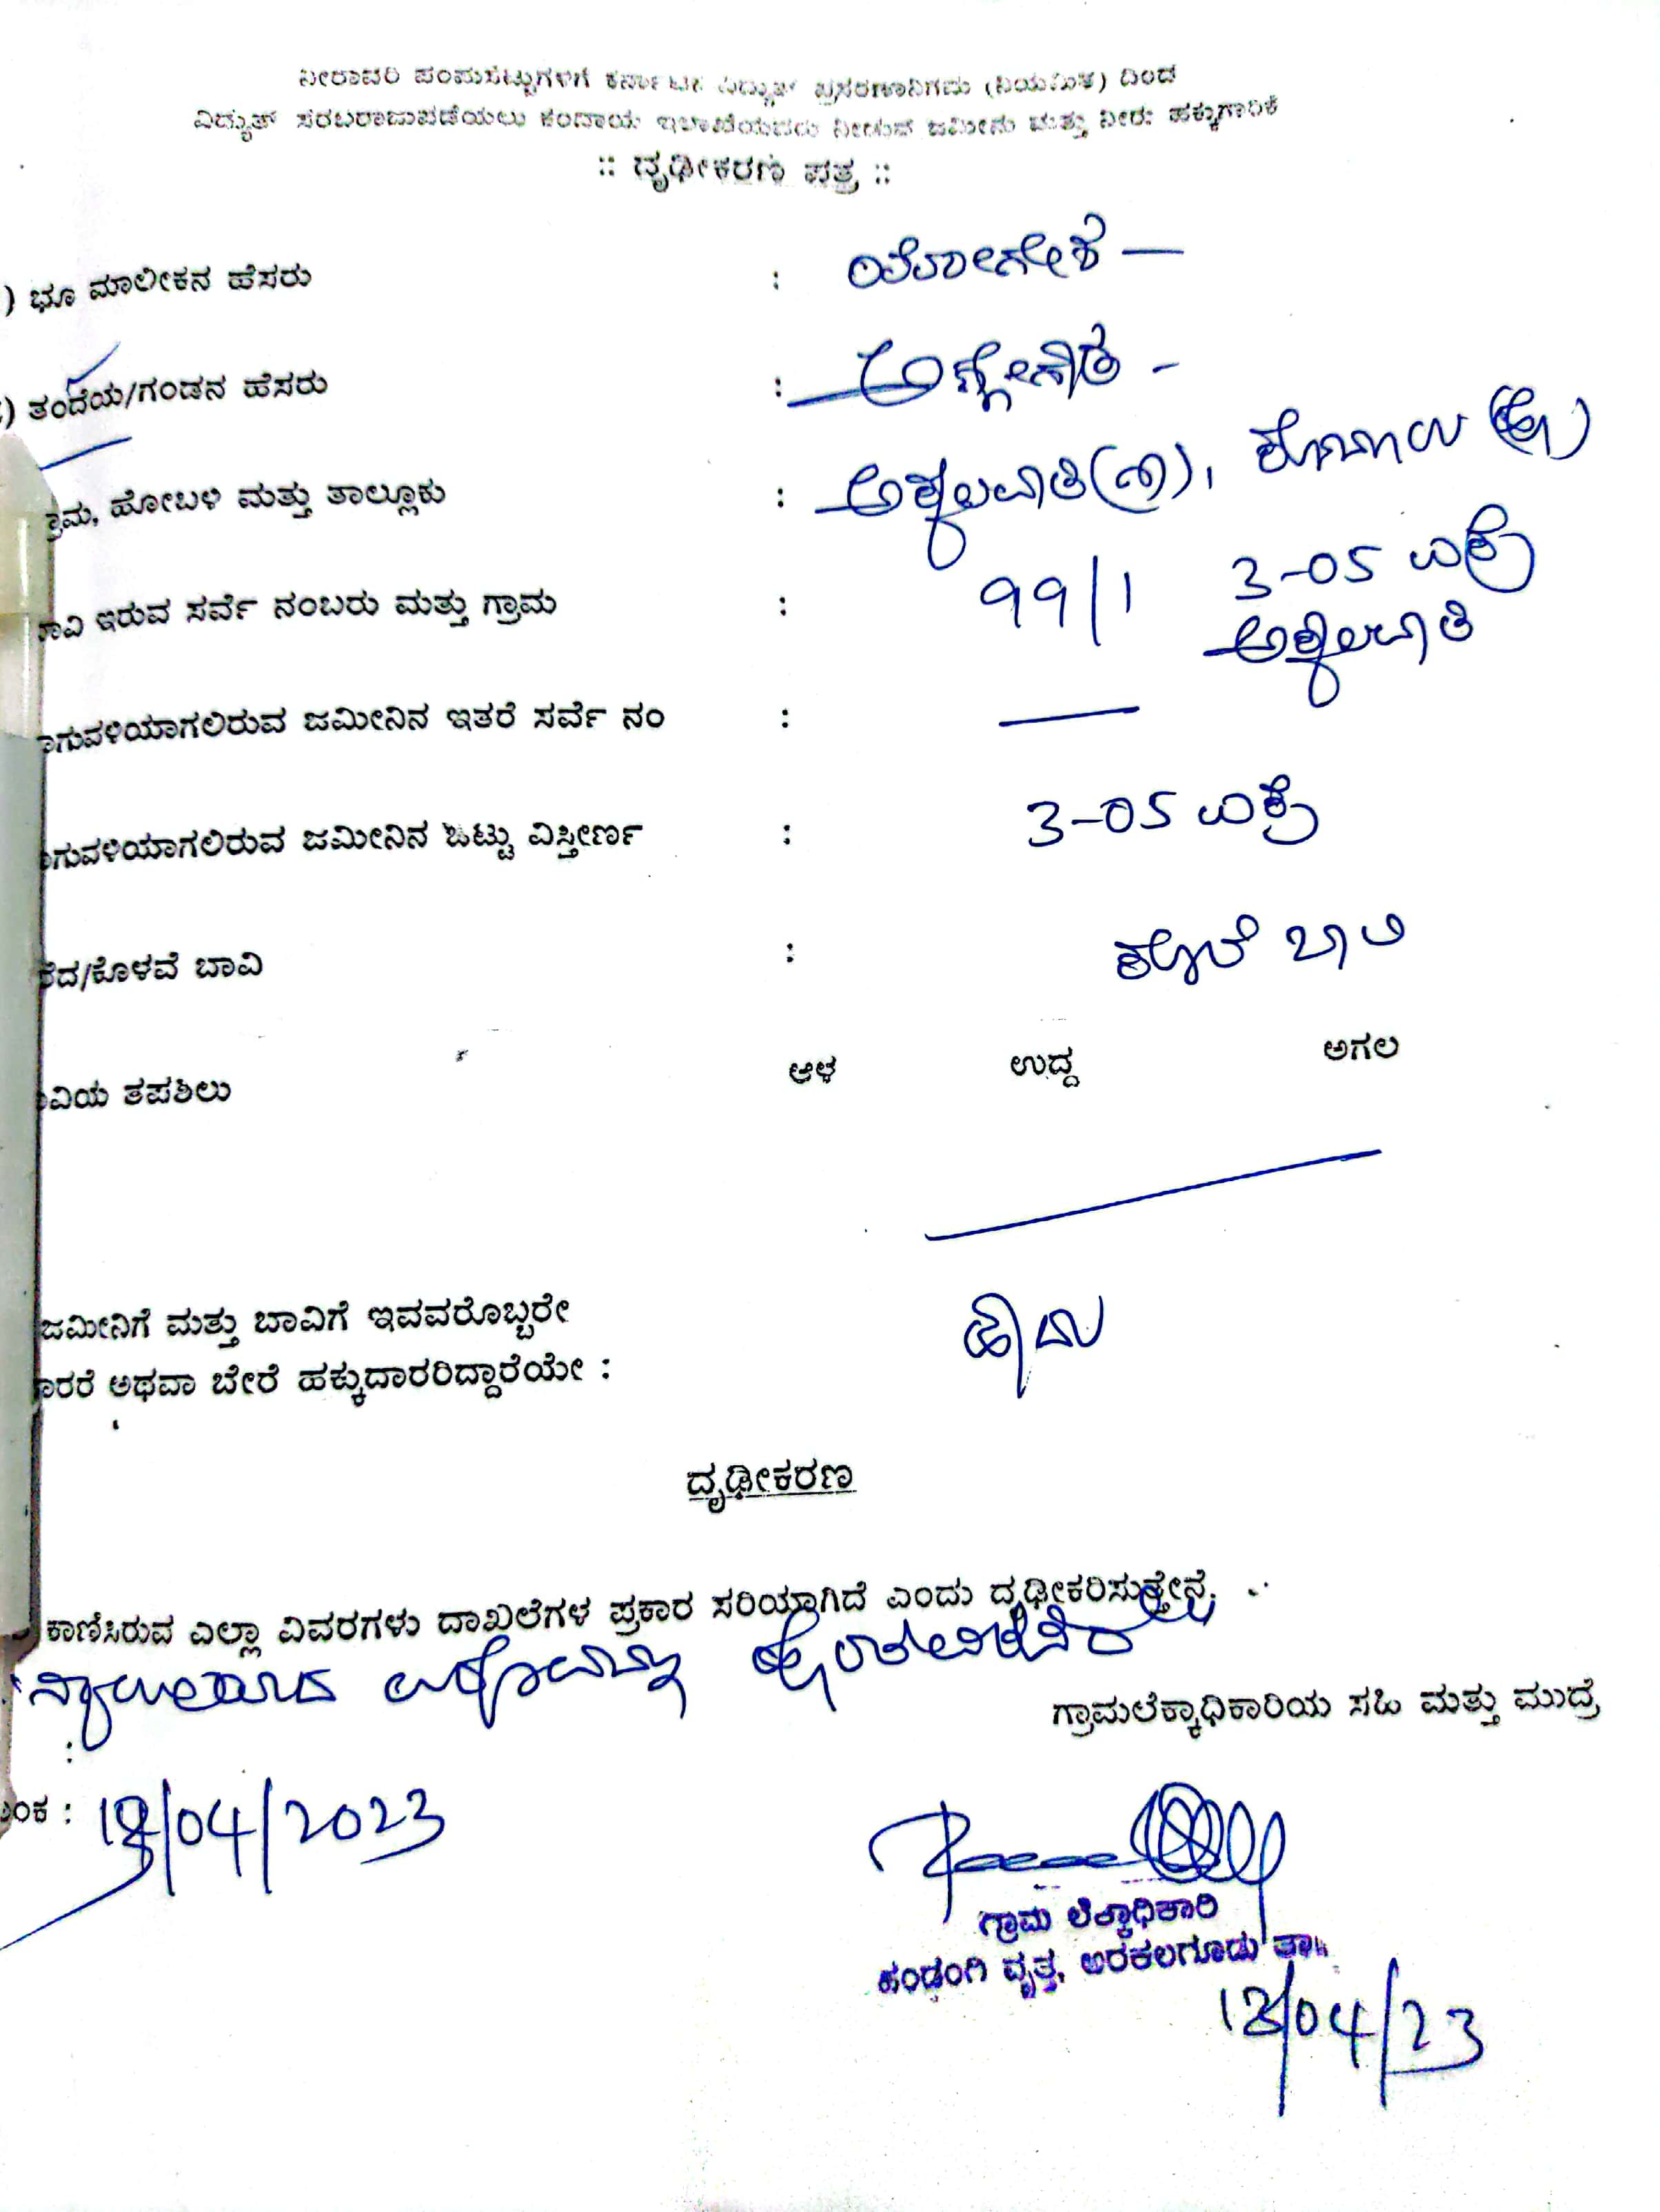 ನೀರಾವರಿ ಪಂಪುಸೆಟ್ಟುಗಳಿಗೆ ಕರ್ನಾಟಕ ವಿದ್ಯುತ್ ಪ್ರಸರಣಾನಿಗಮ (ನಿಯಮಿತ) ದಿಂದ
ವಿದ್ಯುತ್ ಸರಬರಾಜುಪಡೆಯಲು ಕಂದಾಯ ಇಲಾಖೆಯವರು ನೀಡುವ ಜಮೀನು ಮತ್ತು ನೀರು ಹಕ್ಕುಗಾರಿಕೆ
:: ದೃಢೀಕರಣ ಪತ್ರ ::
) ಭೂ ಮಾಲೀಕನ ಹೆಸರು : ಯೋಗೇಶ —
) ತಂದೆಯ/ಗಂಡನ ಹೆಸರು : ಅಣ್ಣೇಗೌಡ -
ಗ್ರಾಮ, ಹೋಬಳಿ ಮತ್ತು ತಾಲ್ಲೂಕು :
ಾವಿ ಇರುವ ಸರ್ವೆ ನಂಬರು ಮತ್ತು ಗ್ರಾಮ : 99/1 3-05 ಎಕ್ರೆ
ಾಗುವಳಿಯಾಗಲಿರುವ ಜಮೀನಿನ ಇತರೆ ಸರ್ವೆ ನಂ : —
ಾಗುವಳಿಯಾಗಲಿರುವ ಜಮೀನಿನ ಒಟ್ಟು ವಿಸ್ತೀರ್ಣ : 3-05 ಎಕ್ರೆ
ರೆದ/ಕೊಳವೆ ಬಾವಿ : ಕೊಳವೆ ಬಾವಿ
ಾವಿಯ ತಪಶಿಲು ಆಳ ಉದ್ದ ಅಗಲ
ಜಮೀನಿಗೆ ಮತ್ತು ಬಾವಿಗೆ ಇವವರೊಬ್ಬರೇ
ಾರರೆ ಅಥವಾ ಬೇರೆ ಹಕ್ಕುದಾರರಿದ್ದಾರೆಯೇ : ಹೌದು
ದೃಢೀಕರಣ
ಕಾಣಿಸಿರುವ ಎಲ್ಲಾ ವಿವರಗಳು ದಾಖಲೆಗಳ ಪ್ರಕಾರ ಸರಿಯಾಗಿದೆ ಎಂದು ದೃಢೀಕರಿಸುತ್ತೇನೆ.
ಗ್ರಾಮಲೆಕ್ಕಾಧಿಕಾರಿಯ ಸಹಿ ಮತ್ತು ಮುದ್ರೆ
:
ಾಂಕ : 18/04/2023
ಗ್ರಾಮ ಲೆಕ್ಕಾಧಿಕಾರಿ
ಹಂಡ್ರಂಗಿ ವೃತ್ತ, ಅರಕಲಗೂಡು ತಾ॥
18/04/23